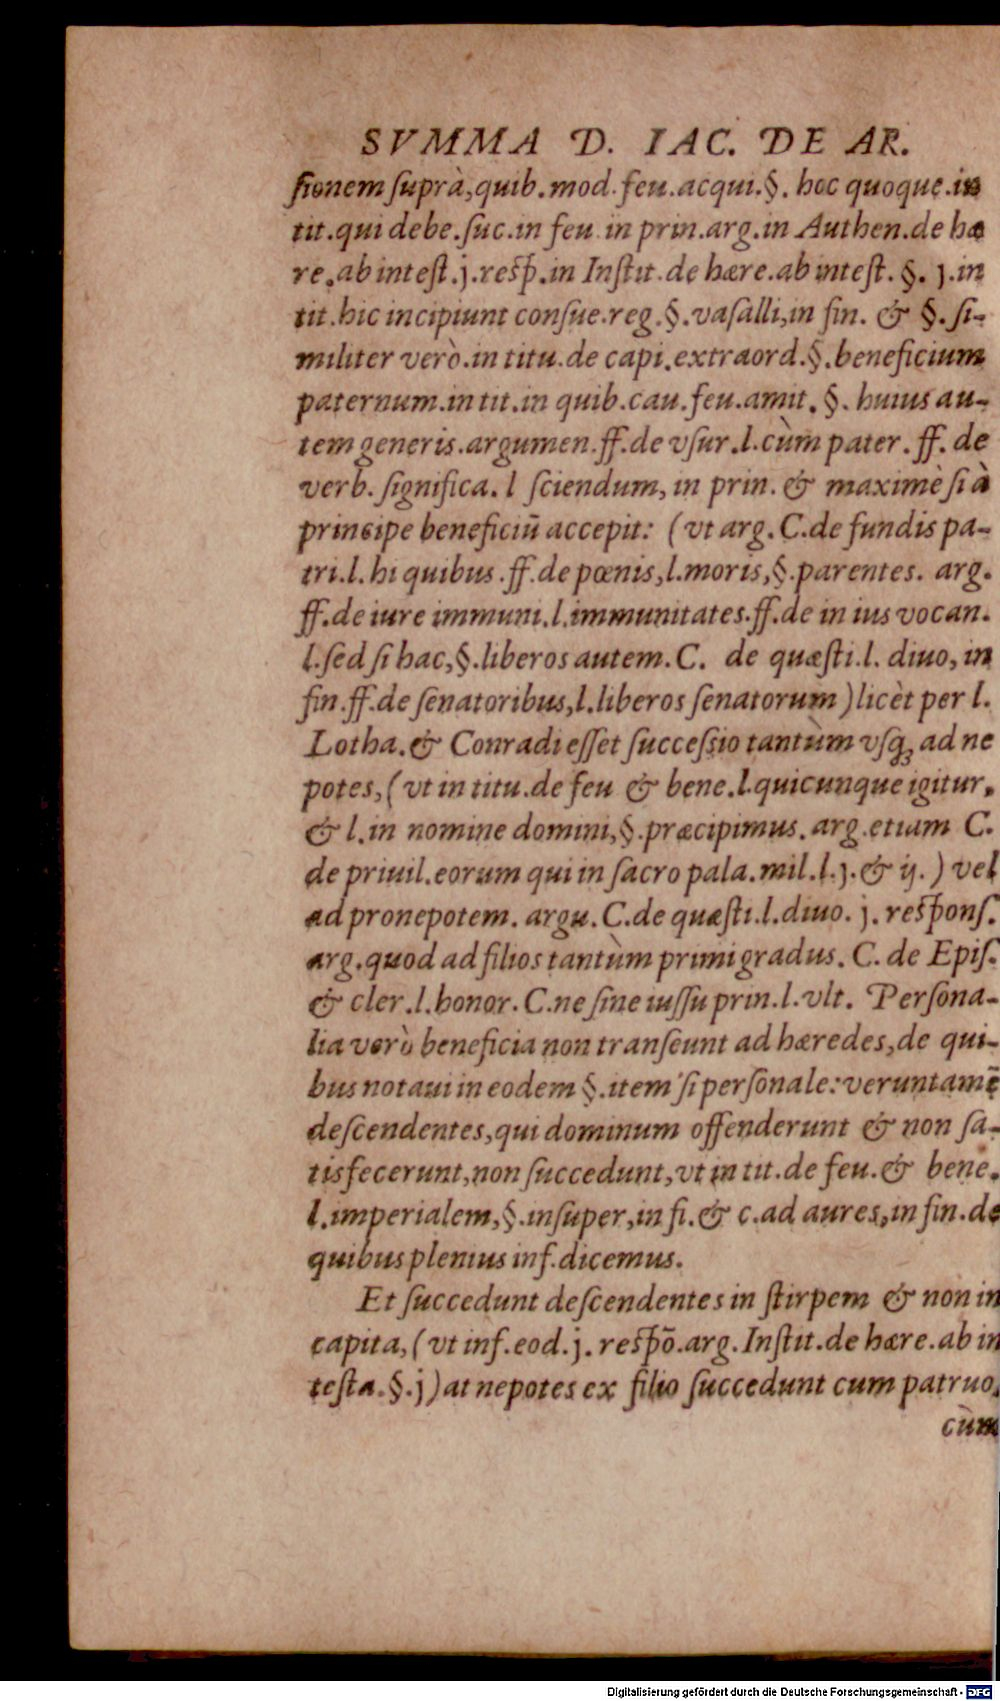 SVMMA D. IAC. DE AR.
ſionem ſuprà, quib. mod. feu. acqui. §. hoc quoque. in
tit. qui debe. ſuc. in feu. in prin. arg. in Authen. de hæ
re. ab inteſt. j. reſp. in Inſtit. de hære. ab inteſt. §. j. in
tit. hic incipiunt conſue. reg. §. vaſalli, in fin. & §. ſi-
militer verò. in titu. de capi. extraord. §. beneficium
paternum. in tit. in quib. cau. feu. amit. §. huius au-
tem generis. argumen. ff. de vſur. l. cùm pater. ff. de
verb. ſignifica. l ſciendum, in prin. & maximè ſi à
principe beneficiū accepit: (vt arg. C. de fundis pa-
tri. l. hi quibus. ff. de pœnis, l. moris, §. parentes. arg.
ff. de iure immuni. l. immunitates. ff. de in ius vocan.
l. ſed ſi hac, §. liberos autem. C. de quæſti. l. diuo, in
fin. ff. de ſenatoribus, l. liberos ſenatorum) licèt per l.
Lotha. & Conradi eſſet ſucceſsio tantùm vſq; ad ne
potes, (vt in titu. de feu & bene. l. quicunque igitur,
& l. in nomine domini, §. præcipimus. arg. etiam C.
de priuil. eorum qui in ſacro pala. mil. l. j. & ij.) vel
ad pronepotem. argu. C. de quæſti. l. diuo. j. reſponſ.
arg. quod ad filios tantùm primi gradus. C. de Epiſ.
& cler. l. honor. C. ne ſine iuſſu prin. l. vlt. Perſona-
lia verò beneficia non tranſeunt ad hæredes, de qui-
bus notaui in eodem §. item ſi perſonale: veruntamē
deſcendentes, qui dominum offenderunt & non ſa-
tisfecerunt, non ſuccedunt, vt in tit. de feu. & bene.
l. imperialem, §. inſuper, in fi. & c. ad aures, in fin. de
quibus plenius inf. dicemus.
Et ſuccedunt deſcendentes in ſtirpem & non in
capita, (vt inf. eod. j. reſpō. arg. Inſtit. de hære. ab in
teſta. §. j) at nepotes ex filio ſuccedunt cum patruo,
cùm
Digitalisierung gefördert durch die Deutsche Forschungsgemeinschaft - DFG